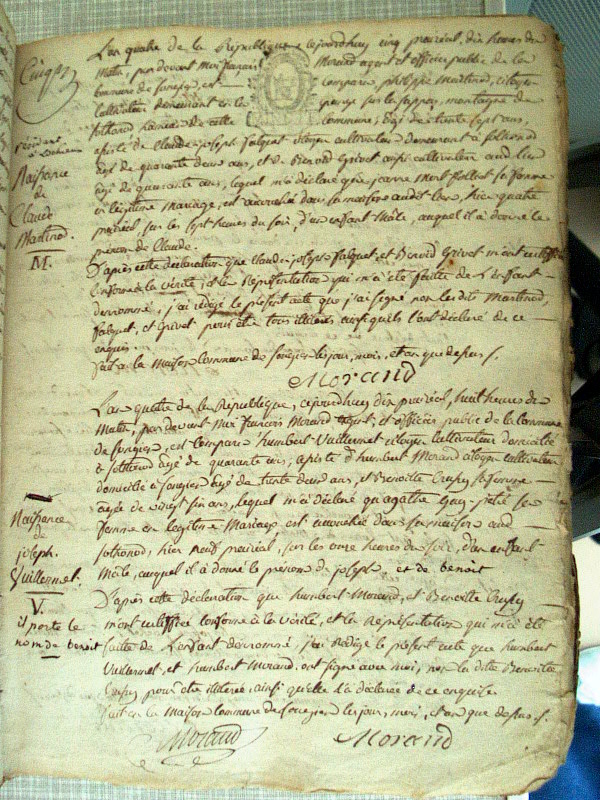 L'an quatre de la République cejourdhuy cinq prairial, dix heures du
Matin, pardevant Moi françois Morand agent et officier public de la
Commune de songieu, est comparu philippe Martinod, citoyen
Cultivateur demeurant en la
sothonod hameau de cette commune, âgé de trente sept ans,
assisté de Claude joseph falquet citoyen cultivateur demeurant à sothonod
âgé de quarante deux ans, et de Benoid Grivet aussi cultivateur aud lieu
âgé de quarante ans, lequel m'a déclaré que jeanne sa femme
en légitime Mariage, est accouchée dans sa maison audit lieu, hier quatre
prairial, sur les sept heures du soir, d'un enfant Mâle, auquel il a donné le
prénom de Claude.
D'après cette déclaration que Claude joseph falquet, et Benoid Grivet m'ont certiffiée
Conforme à la vérité, et la Représentation qui m'a été faitte de L'enfant
denommé, j'ai rédigé le présent acte que j'ai signé non lesdits Martinod,
falquet, et Grivet pour être tous illiterés ainsi qu'ils l'ont déclaré de ce
enquis.
fait en la Maison Commune de songieu les jour, mois, et an que depuis /.
Morand
Naissance
de
Claude
Martinod.
M.
L'an quatre de la République, cejourdhuy dix prairial, huit heures du
Matin, pardevant Moi françois Morand agent, et officier public de la Commune
de songieu, est comparu humbert Vuillermet citoyen Cultivateur domicilié
à sothonod âgé de quarante ans, assisté d'humbert Morand citoyen cultivateur
domicilié à songieu âgé de trente deux ans, et Benoitte sa femme
agée de vingt six ans, lequel m'a déclaré qu'agathe sa
femme en legitime Mariage est accouchée dans sa maison aud
sothonod, hier neuf prairial, sur les onze heures du soir, d'un enfant
Mâle, auquel il a donné le prénom de joseph, et de benoit
D'après cette déclaration que humbert Morand, et Benoitte
m'ont certiffiée conforme à la vérité, et la Représentation qui m'a été
faitte de L'enfant denommé, j'ai Rédigé le présent acte que humbert
Vuillermet, et humbert Morand ont signé avec moi, non la dite Benoitte
pour être illiterée ainsi qu'elle l'a déclarée de ce enquise
fait en la Maison Commune de songieu les jour, mois, et an que depuis /.
Morand Morand
Naissance
de
joseph
Vuillermet.
V.
il porte le
nom de benoit